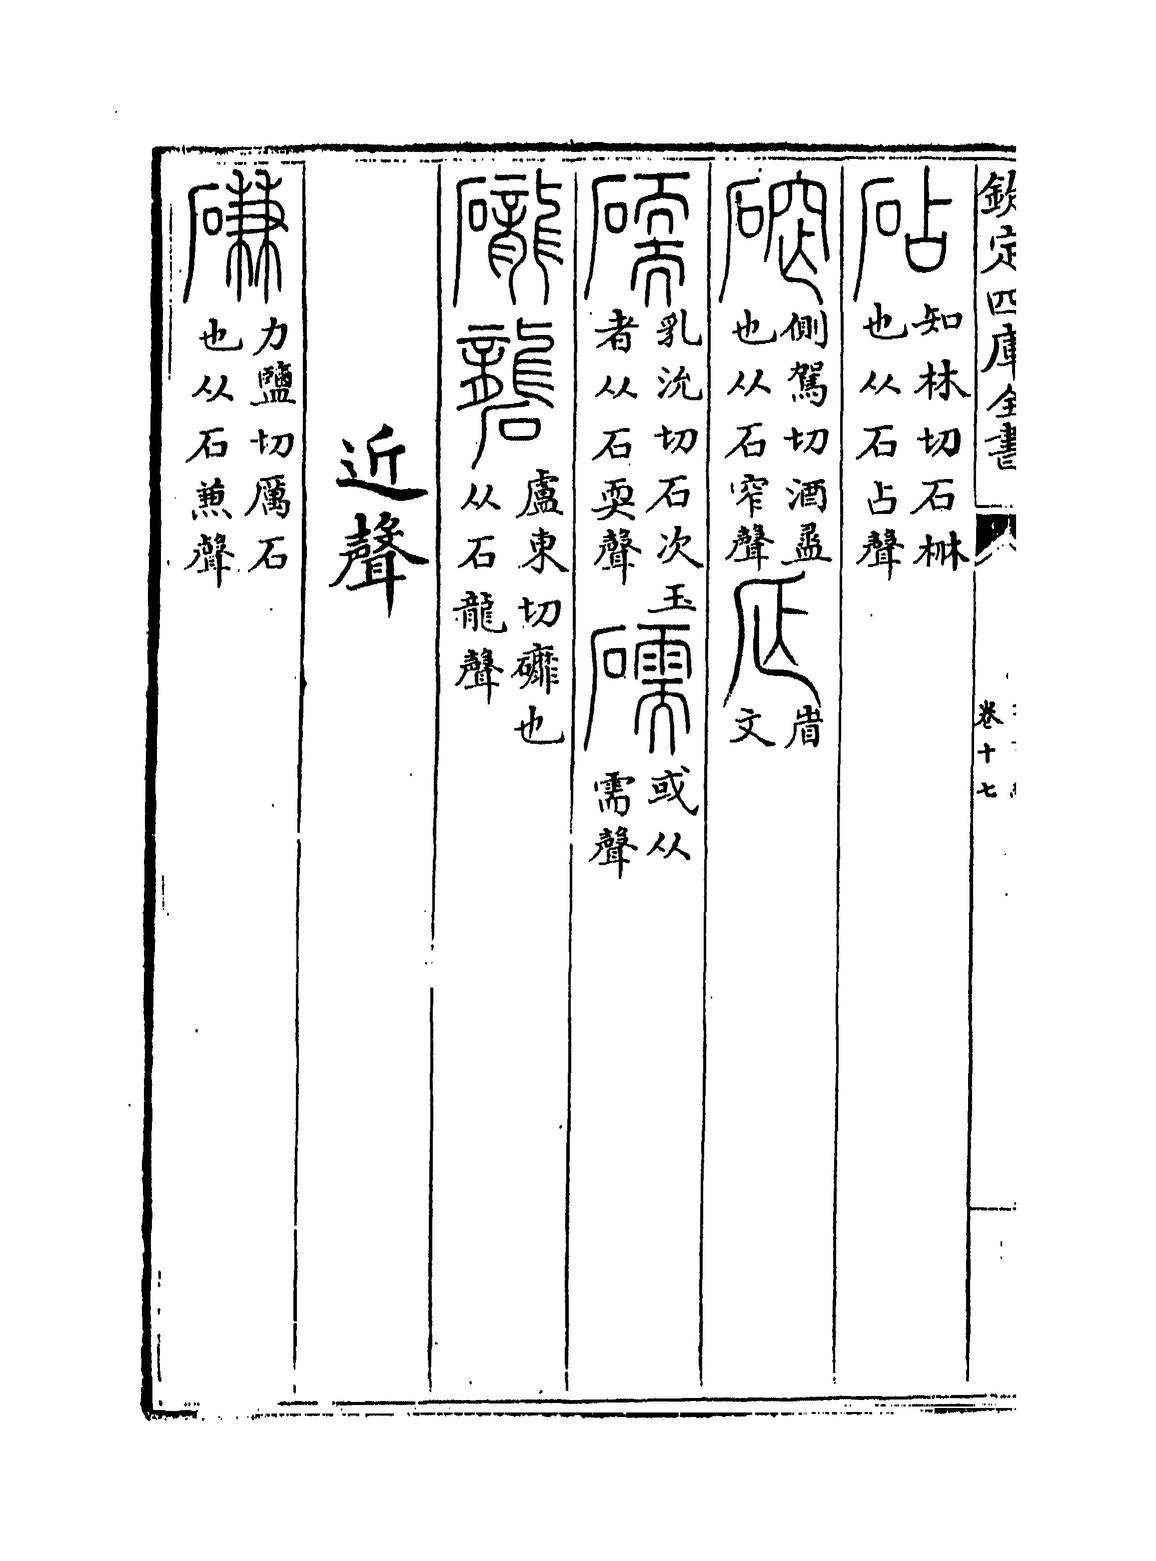 欽定四庫全書
卷十七
砧知林切石椕也从石占聲
䃎側駕切酒盝也从石窄聲省文
碝乳沇切石次玉者从石耎聲礝或从需聲
礲礱盧東切䃺也从石龍聲
近聲
磏力鹽切厲石也从石兼聲